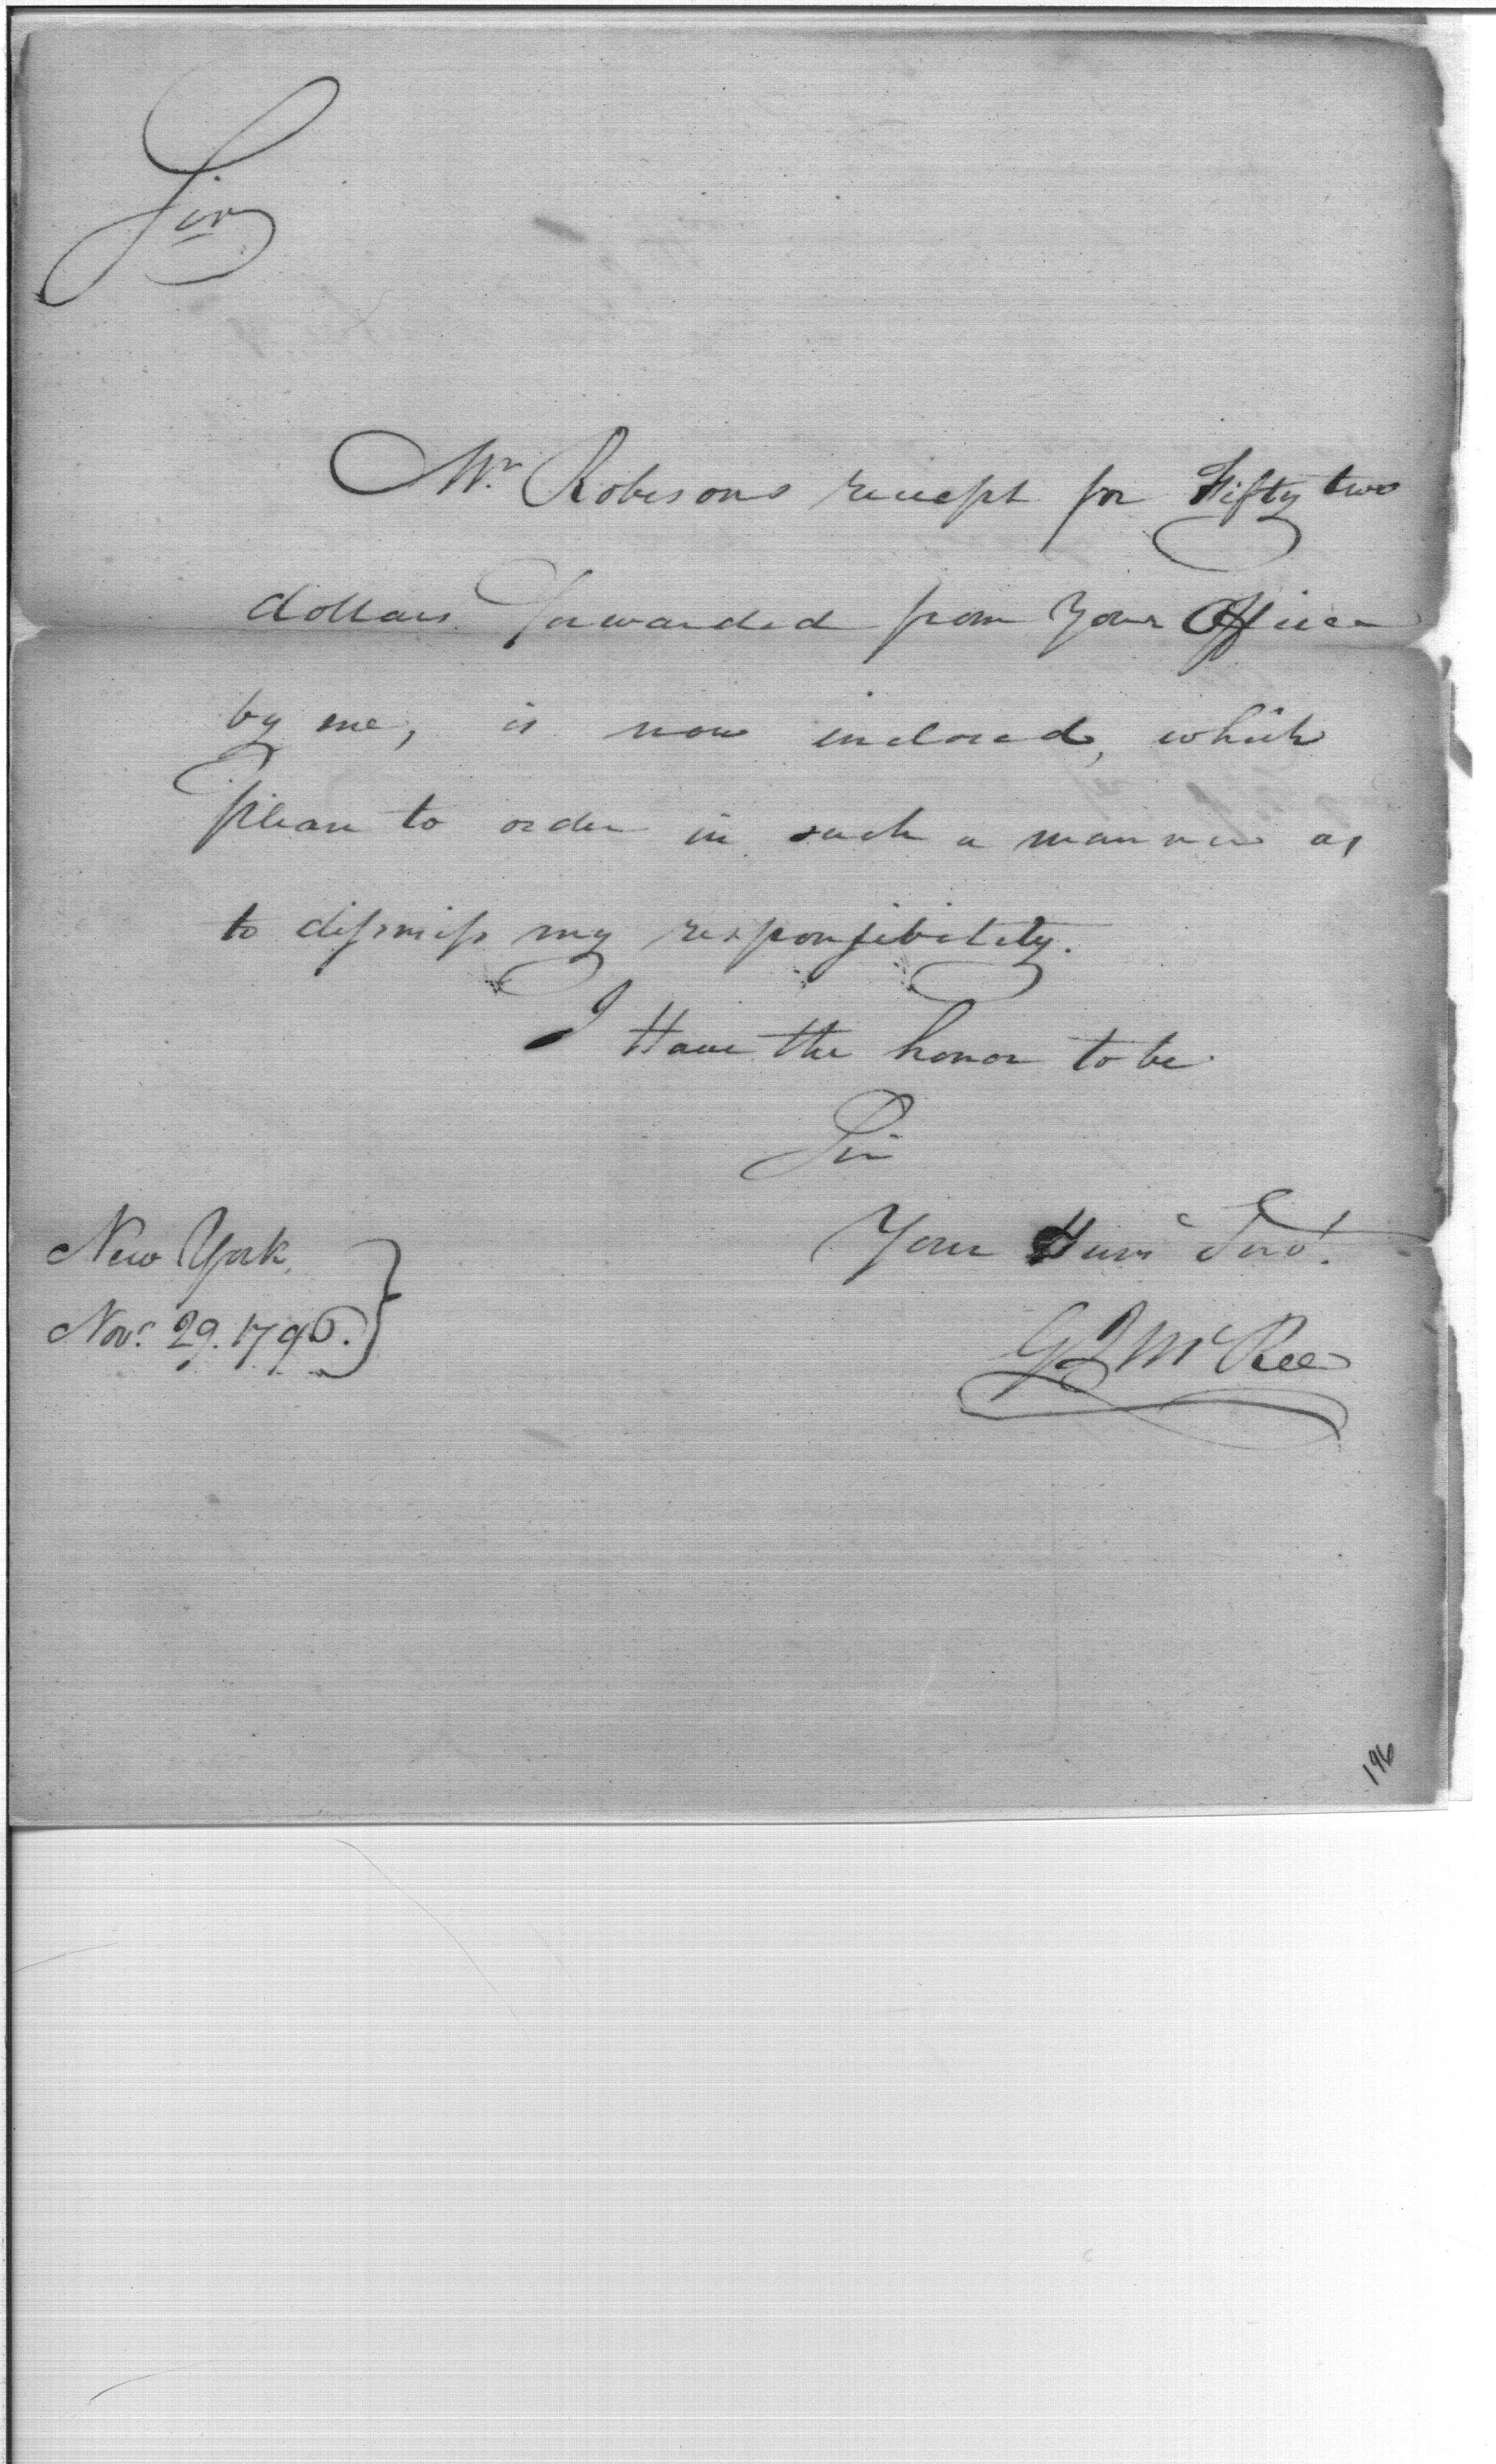 Sir
Mr. Robesons receipt for Fifty two
dollars forwarded from Your Office
by me, is now inclosed, which
please to order in such a manner as
to dissmiss my responsibility.
I Have the honor to be
Sir
Your Hume Servt.
New York,
Novr. 29. 1796.
G J McRee
196